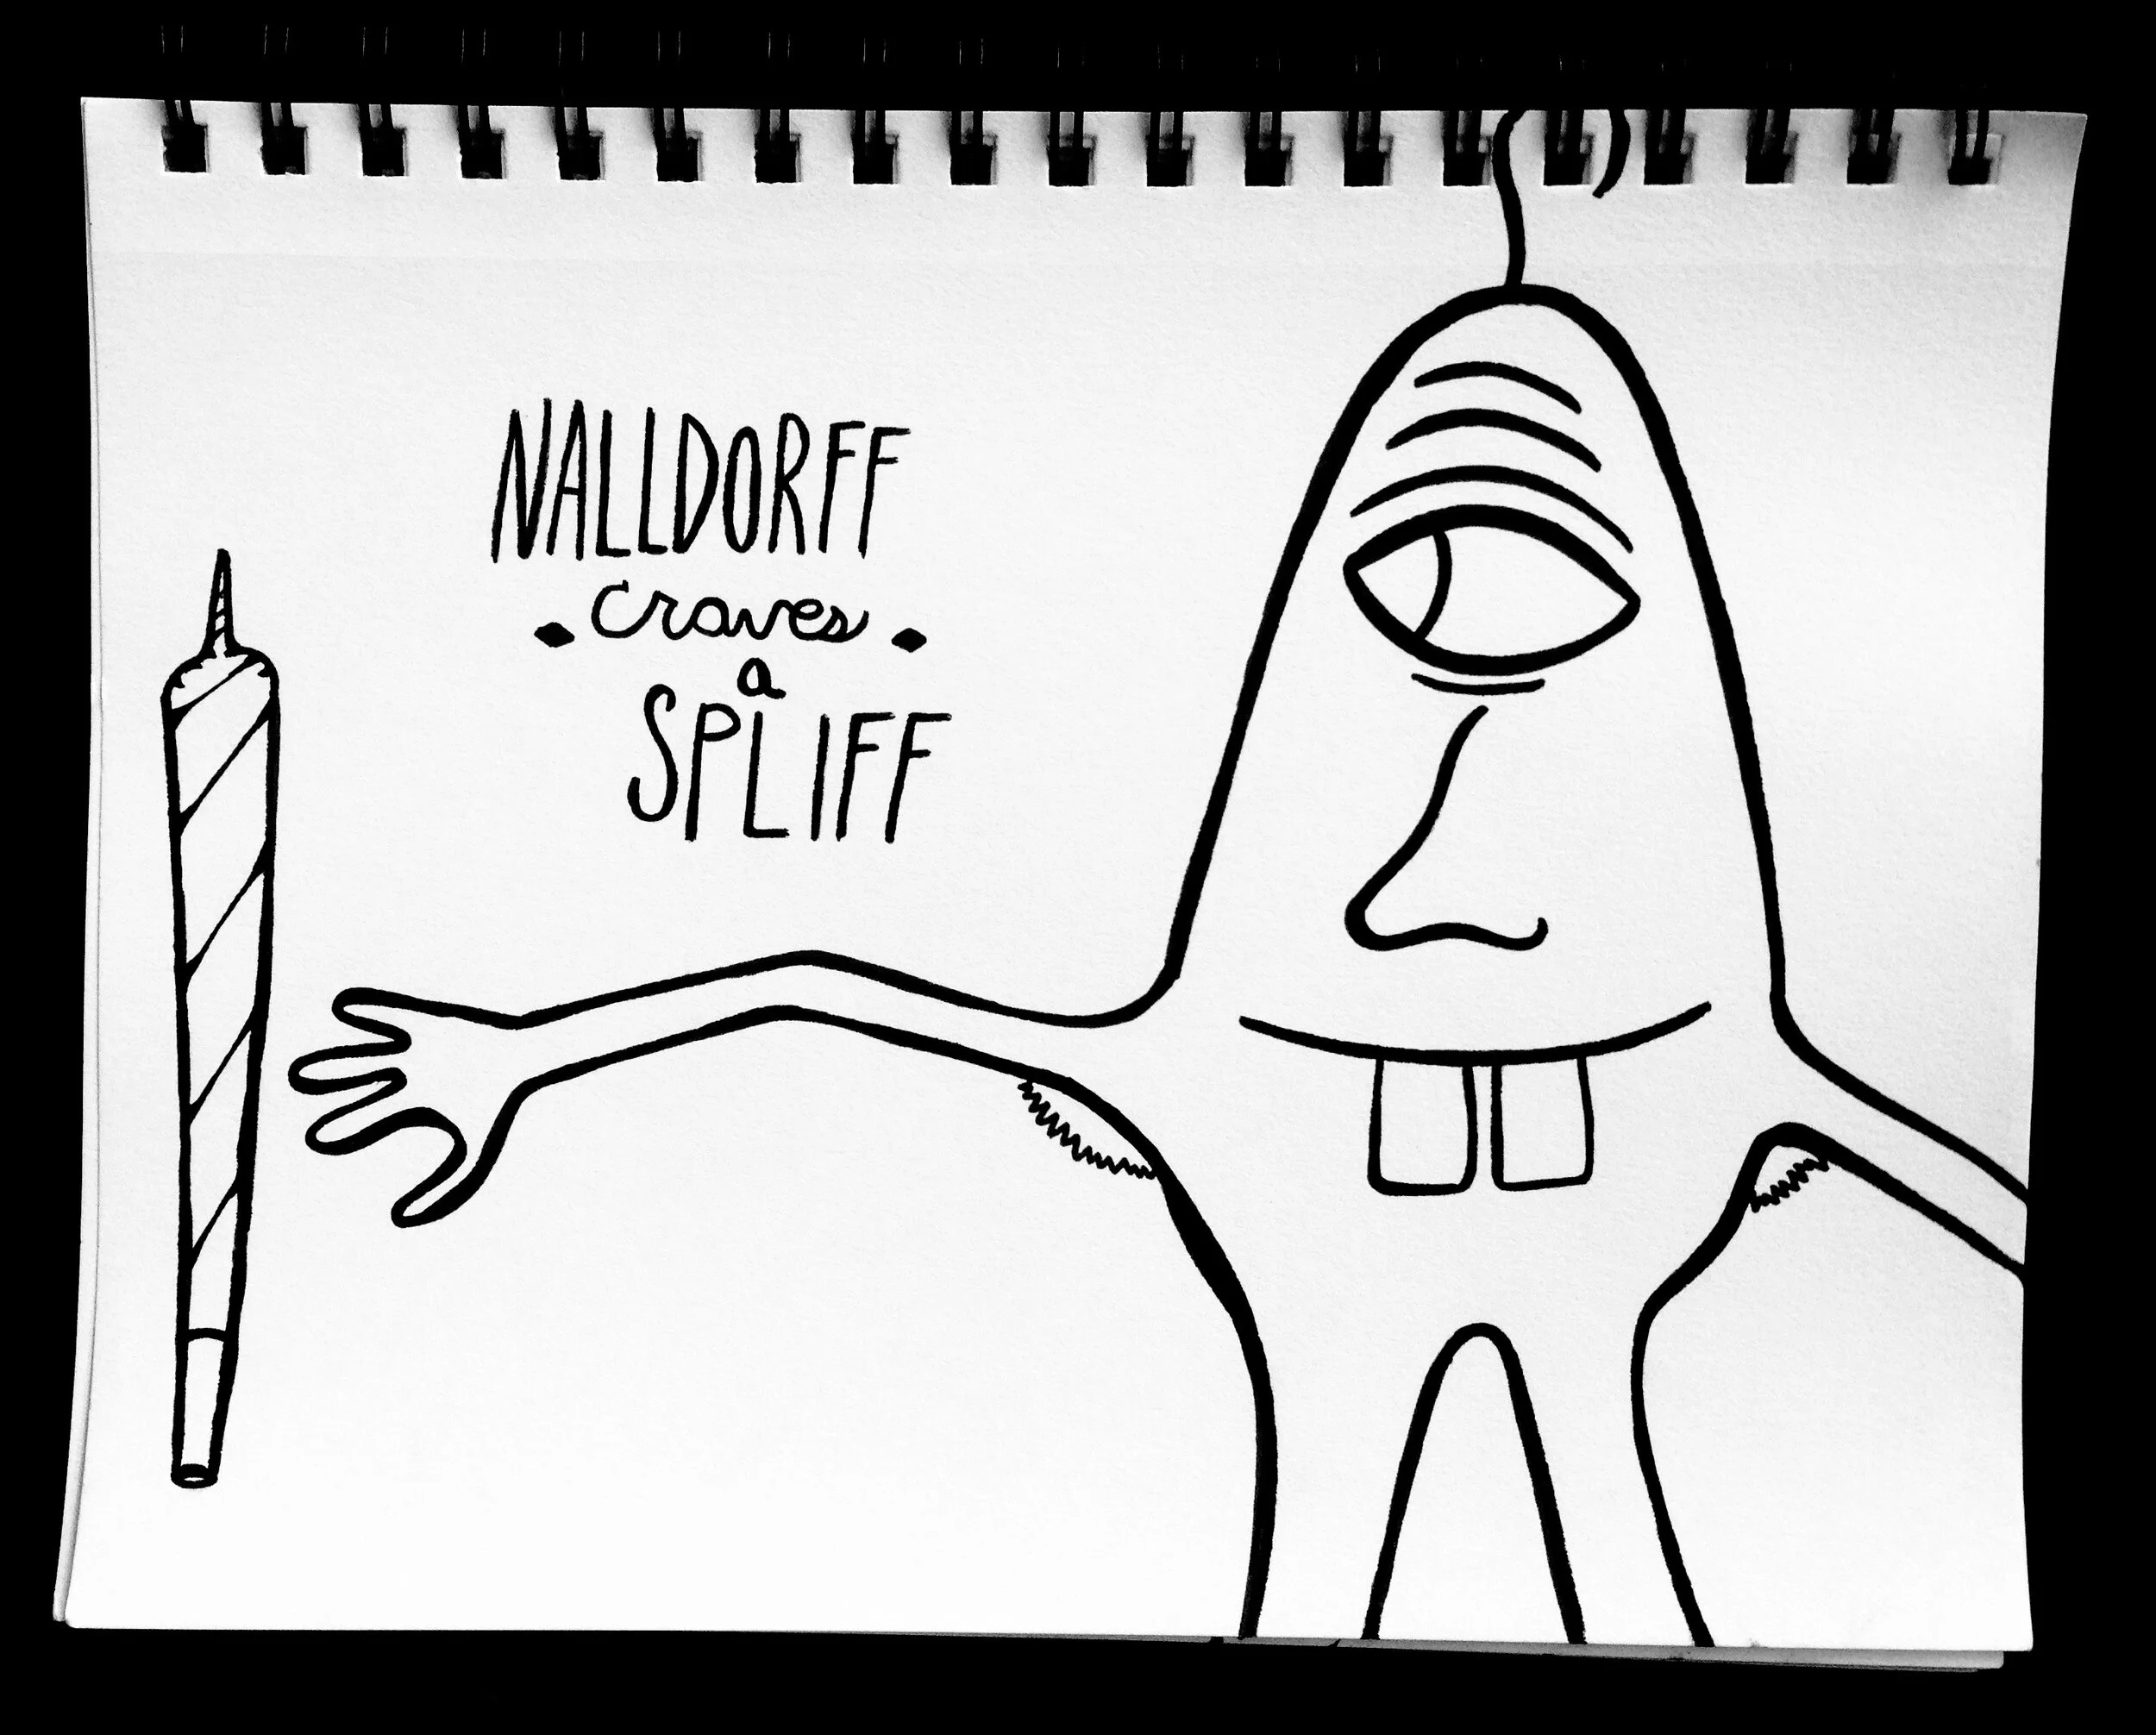 NALLDORFF
craves
a
SPLIFF